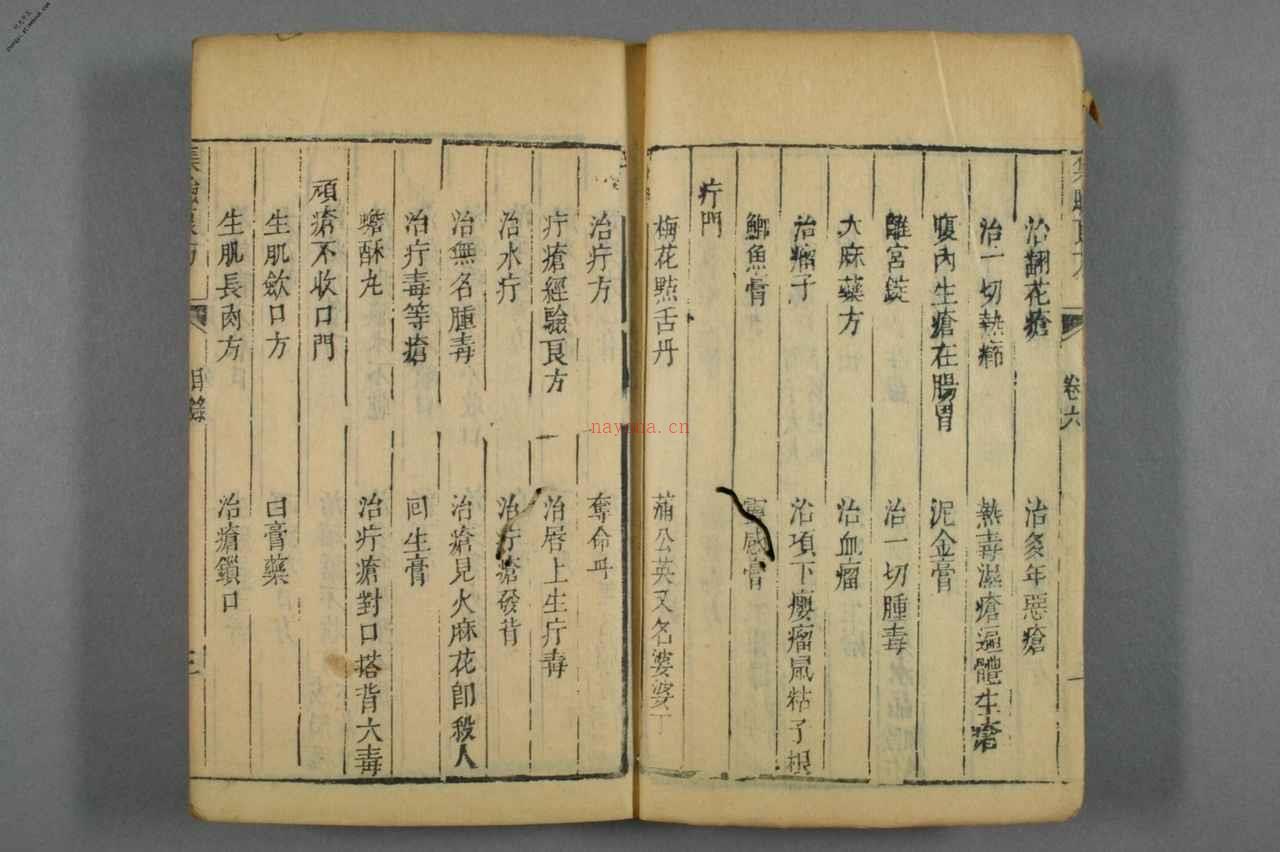 集驗良方
卷六
治翻花瘡
治多年惡瘡
治一切熱癤
熱毒濕瘡遍體生瘡
腹內生瘡在腸胃
泥金膏
離宮錠
治一切腫毒
大麻藥方
治血瘤
治瘤子
治項下癭瘤鼠粘子根
鯽魚膏
靈感膏
疔門
梅花點舌丹
蒲公英又名婆婆丁
治疔方
奪命丹
疔瘡經驗良方
治唇上生疔毒
治水疔
治疔瘡發背
治無名腫毒
治瘡見火麻花卽殺人
治疔毒等瘡
回生膏
蟾酥丸
治疔瘡對口搭背六毒
頑瘡不收口門
生肌斂口方
白膏藥
生肌長肉方
治瘡鎖口
集驗良方
目錄
三
nayona.cn